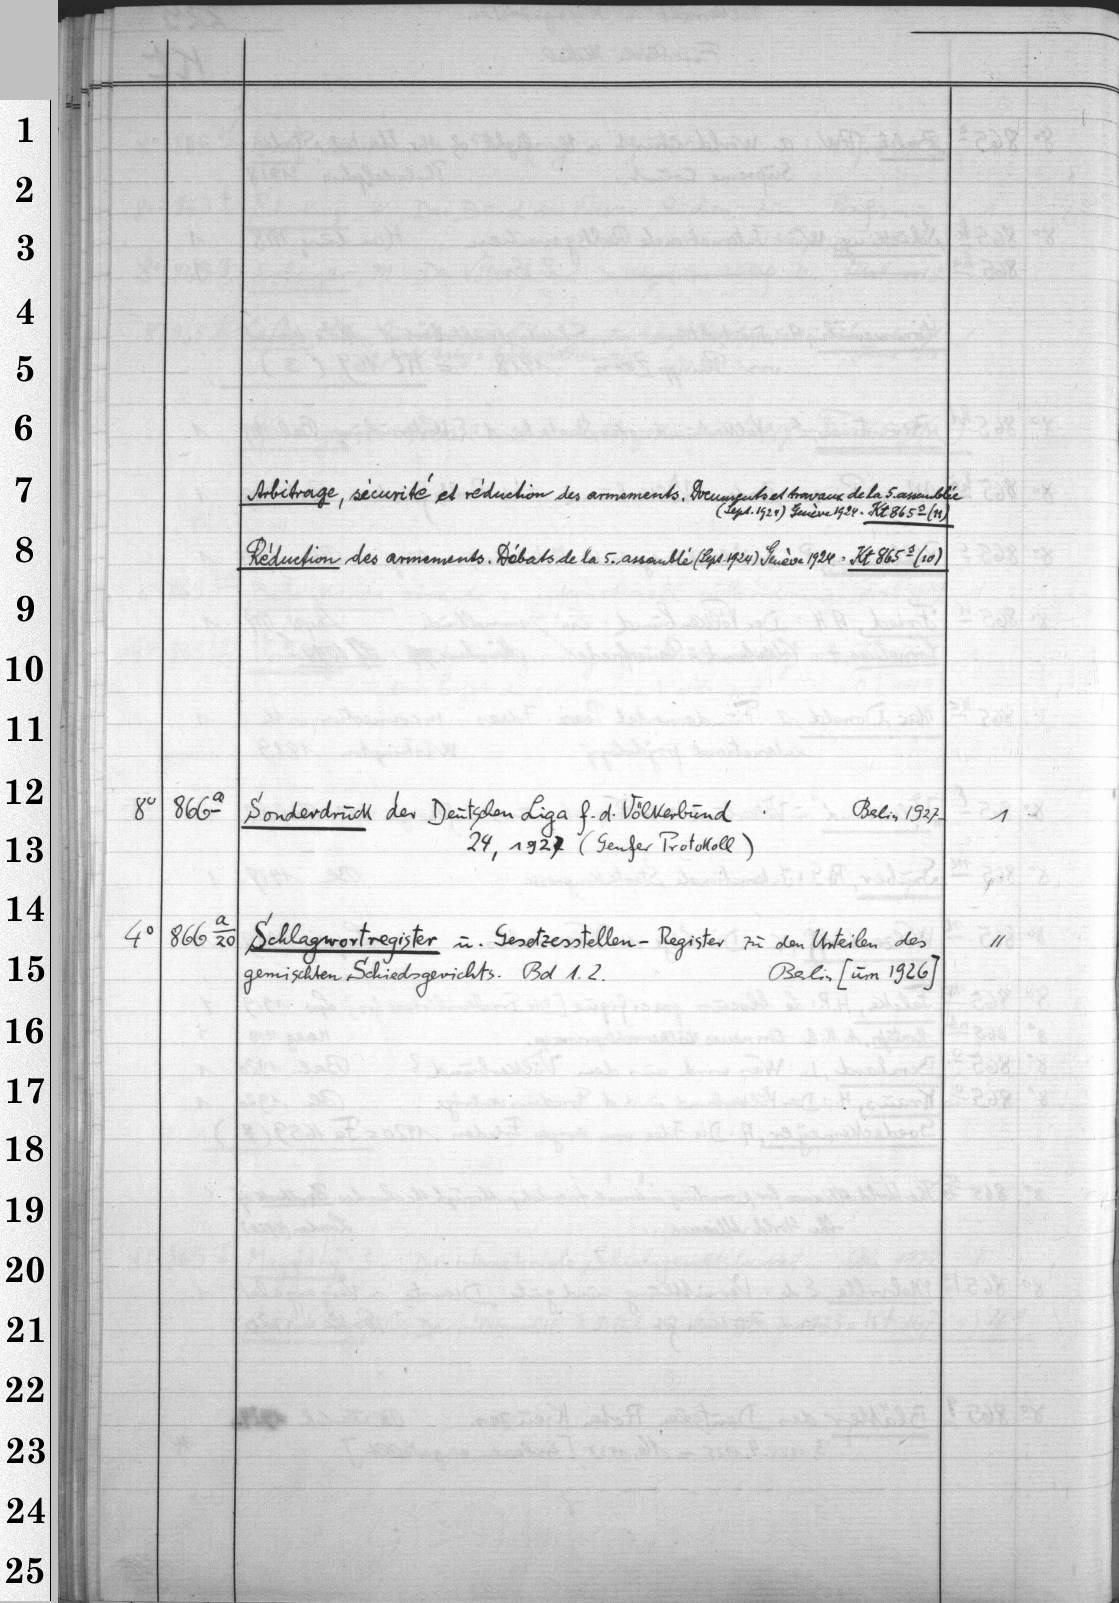 1
2
3
4
5
6
7
Arbitrage, sécurité et réduction des armements. Documents et travaux de la 5. assemblée
(Sept. 1924) Genève 1924. Kt 865ᵍ (11)
8
Réduction des armements. Débats de la 5. assemblé (Sept. 1924) Genève 1924. Kt 865ᵍ (10)
9
10
11
12
8° 866ᵃ Sonderdruck der Deutschen Liga f. d. Völkerbund Berlin 1927 1
13
24, 1927 (Genfer Protokoll)
14
4° 866 a/20 Schlagwortregister u. Gesetzesstellen-Register zu den Urteilen des "
15
gemischten Schiedsgerichts. Bd 1. 2. Berlin [um 1926]
16
17
18
19
20
21
22
23
24
25